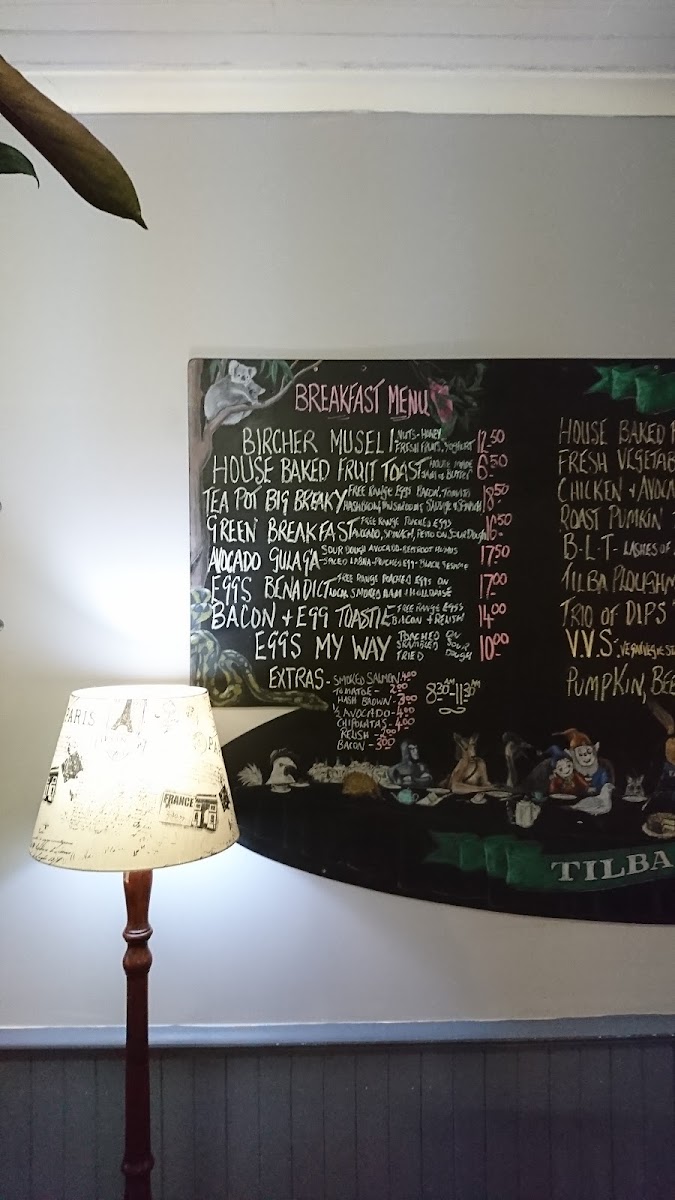 BREAKFAST MENU
BIRCHER MUSELI - NUTS - HONEY FRESH FRUITS, YOGHURT 12.50
HOUSE BAKED FRUIT TOAST HOUSE MADE JAM + BUTTER 6.50
TEA POT BIG BREAKY FREE RANGE EGGS BACON, TOMATO HASHBROWN, MUSHROOMS, SAUSAGE + SPINACH 18.50
GREEN BREAKFAST FREE RANGE POACHED EGGS AVOCADO, SPINACH, PESTO ON SOUR DOUGH 16.50
AVOCADO GULAGA - SOUR DOUGH AVOCADO - BEETROOT HUMUS POACHED EGG - BLACK SESAME 17.50
EGGS BENADICT FREE RANGE POACHED EGGS ON LOCAL SMOKED HAM + HOLLANDAISE 17.00
BACON + EGG TOASTIE - FREE RANGE EGGS BACON + RELISH 14.00
EGGS MY WAY POACHED ON SKRAMBLED SOUR FRIED DOUGH 10.00
EXTRAS - SMOKED SALMON 4.00
TOMATOE - 2.00
HASH BROWN - 3.00
½ AVOCADO - 4.00
CHIPOLATAS - 4.00
RELISH - 2.00
BACON - 3.00
8:30AM - 11:30AM
HOUSE BAKED
FRESH
CHICKEN + AVOCA
ROAST PUMPKIN
B-L-T- LASHES OF
TILBA PLOUGHM
TRIO OF DIPS
V.V.S.
PUMPKIN, BEE
TILBA
PARIS
FRANCE